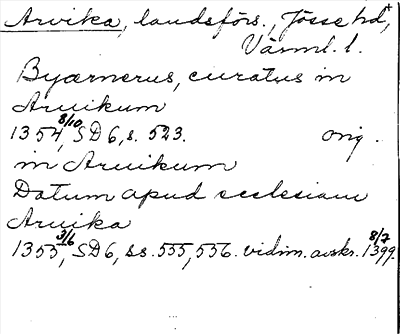 Arvika, landsförs., Jösse hd,
Värml. l.
Byærnerus, curatus in
Aruikum
1354 8/10, SD 6, s. 523. orig.
in Aruikum
Datum apud ecclesiam
Aruika
1355 3/6, SD 6, ss. 555, 556. vidim. avskr. 1399 8/7.